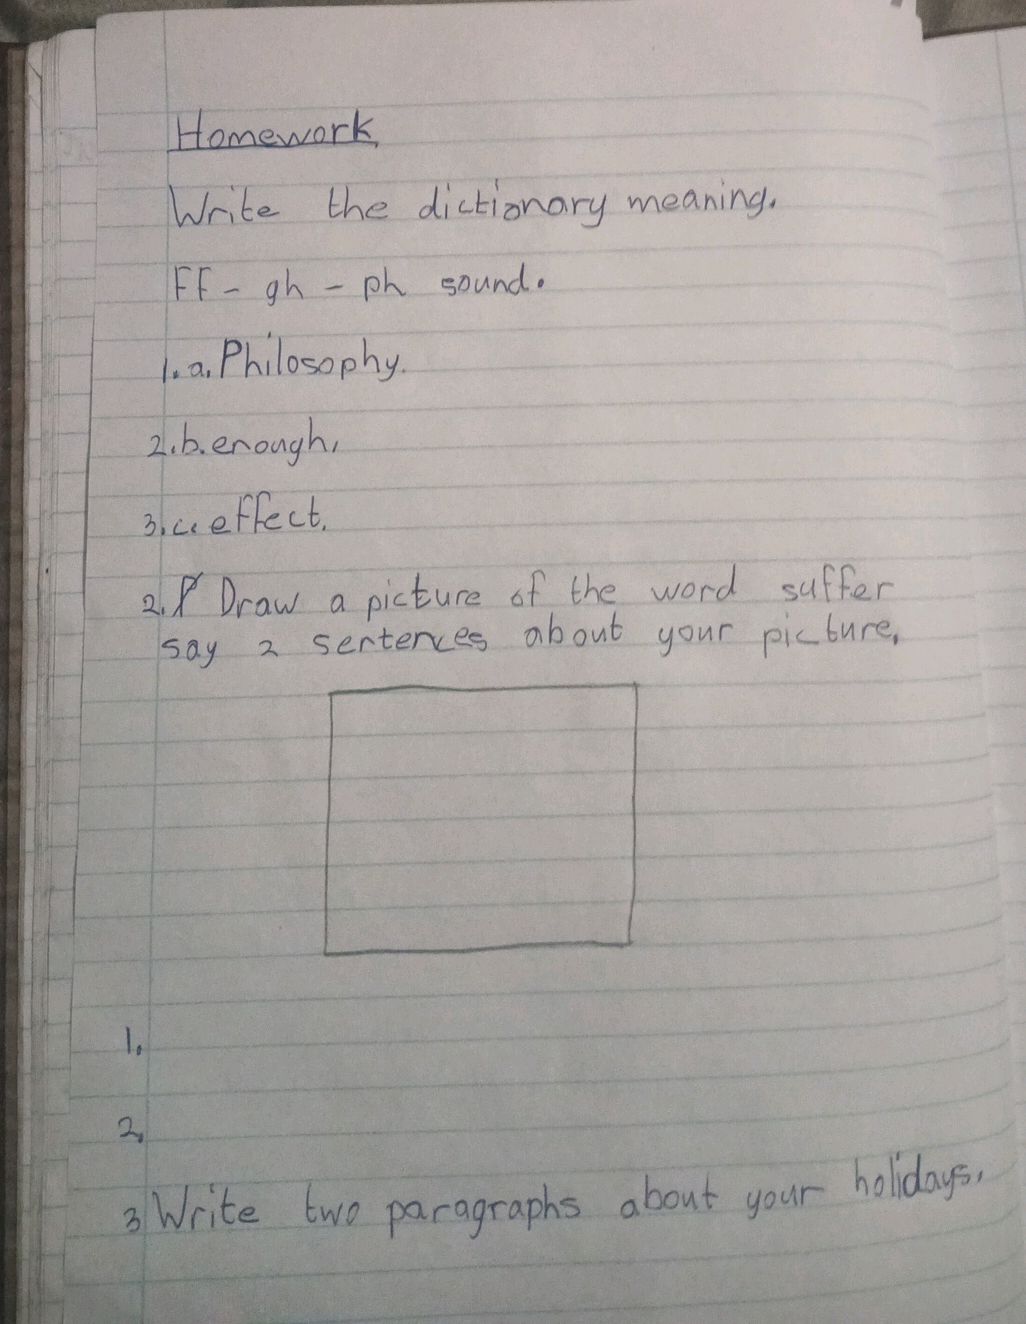 Homework
Write the dictionary meaning.
FF - gh - ph sound.
1. a. Philosophy.
2. b. enough.
3. c. effect.
2. Draw a picture of the word suffer
say 2 sentences about your picture.
1.
2.
3 Write two paragraphs about your holidays.